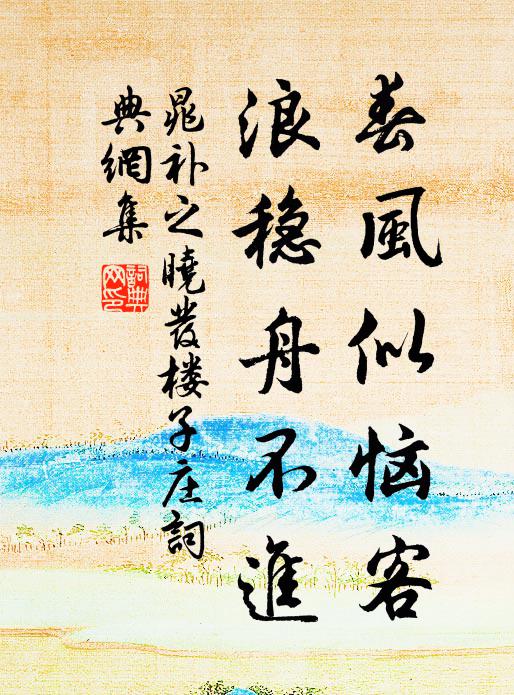 春風似恼客
浪穏舟不進
晁补之曉發楼子庄詞
典網集
詞典
网印